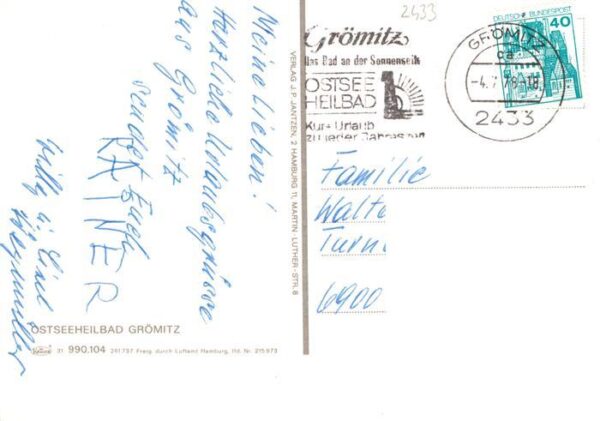 2433
Grömitz
Das Bad an der Sonnenseite
OSTSEE
HEILBAD
Kur + Urlaub
zu jeder Jahreszeit
GRÖMITZ
-4.7.78-18
2433
DEUTSCHE BUNDESPOST
40
Meine Lieben!
Herzliche Urlaubsgrüsse
aus Grömitz
sendet Euch
RAINER
Willy u.
Familie
Walte
Turn
6900
VERLAG J. P. JANTZEN, 2 HAMBURG 11, MARTIN-LUTHER-STR. 8
OSTSEEHEILBAD GRÖMITZ
31 990.104 241787 Freig. durch Luftamt Hamburg, lfd. Nr. 215 973